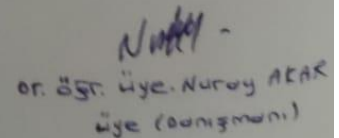 Dr. öğr. üye. Nuray AKAR
üye (Danışmanı)